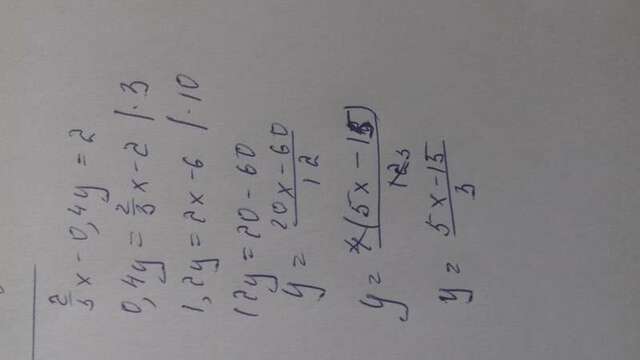 2/3 x - 0,4y = 2
0,4y = 2/3 x - 2 / · 3
1,2y = 2x - 6 / · 10
12y = 20 - 60
y = 20x - 60 / 12
y = 4(5x - 15) / 12 3
y = 5x - 15 / 3